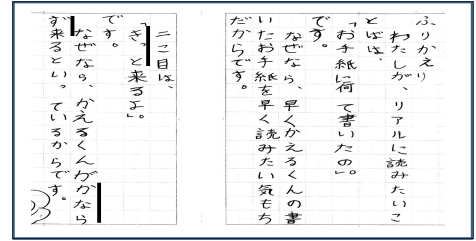 ふりかえり
わたしが、リアルに読みたいこ
とばは、
「お手紙に何て書いたの」。
です。
なぜなら、早くかえるくんの書
いたお手紙を早く読みたい気もち
だからです。
二こ目は、
「きっと来るよ」。
です。
なぜなら、かえるくんがかなら
ず来るといっているからです。